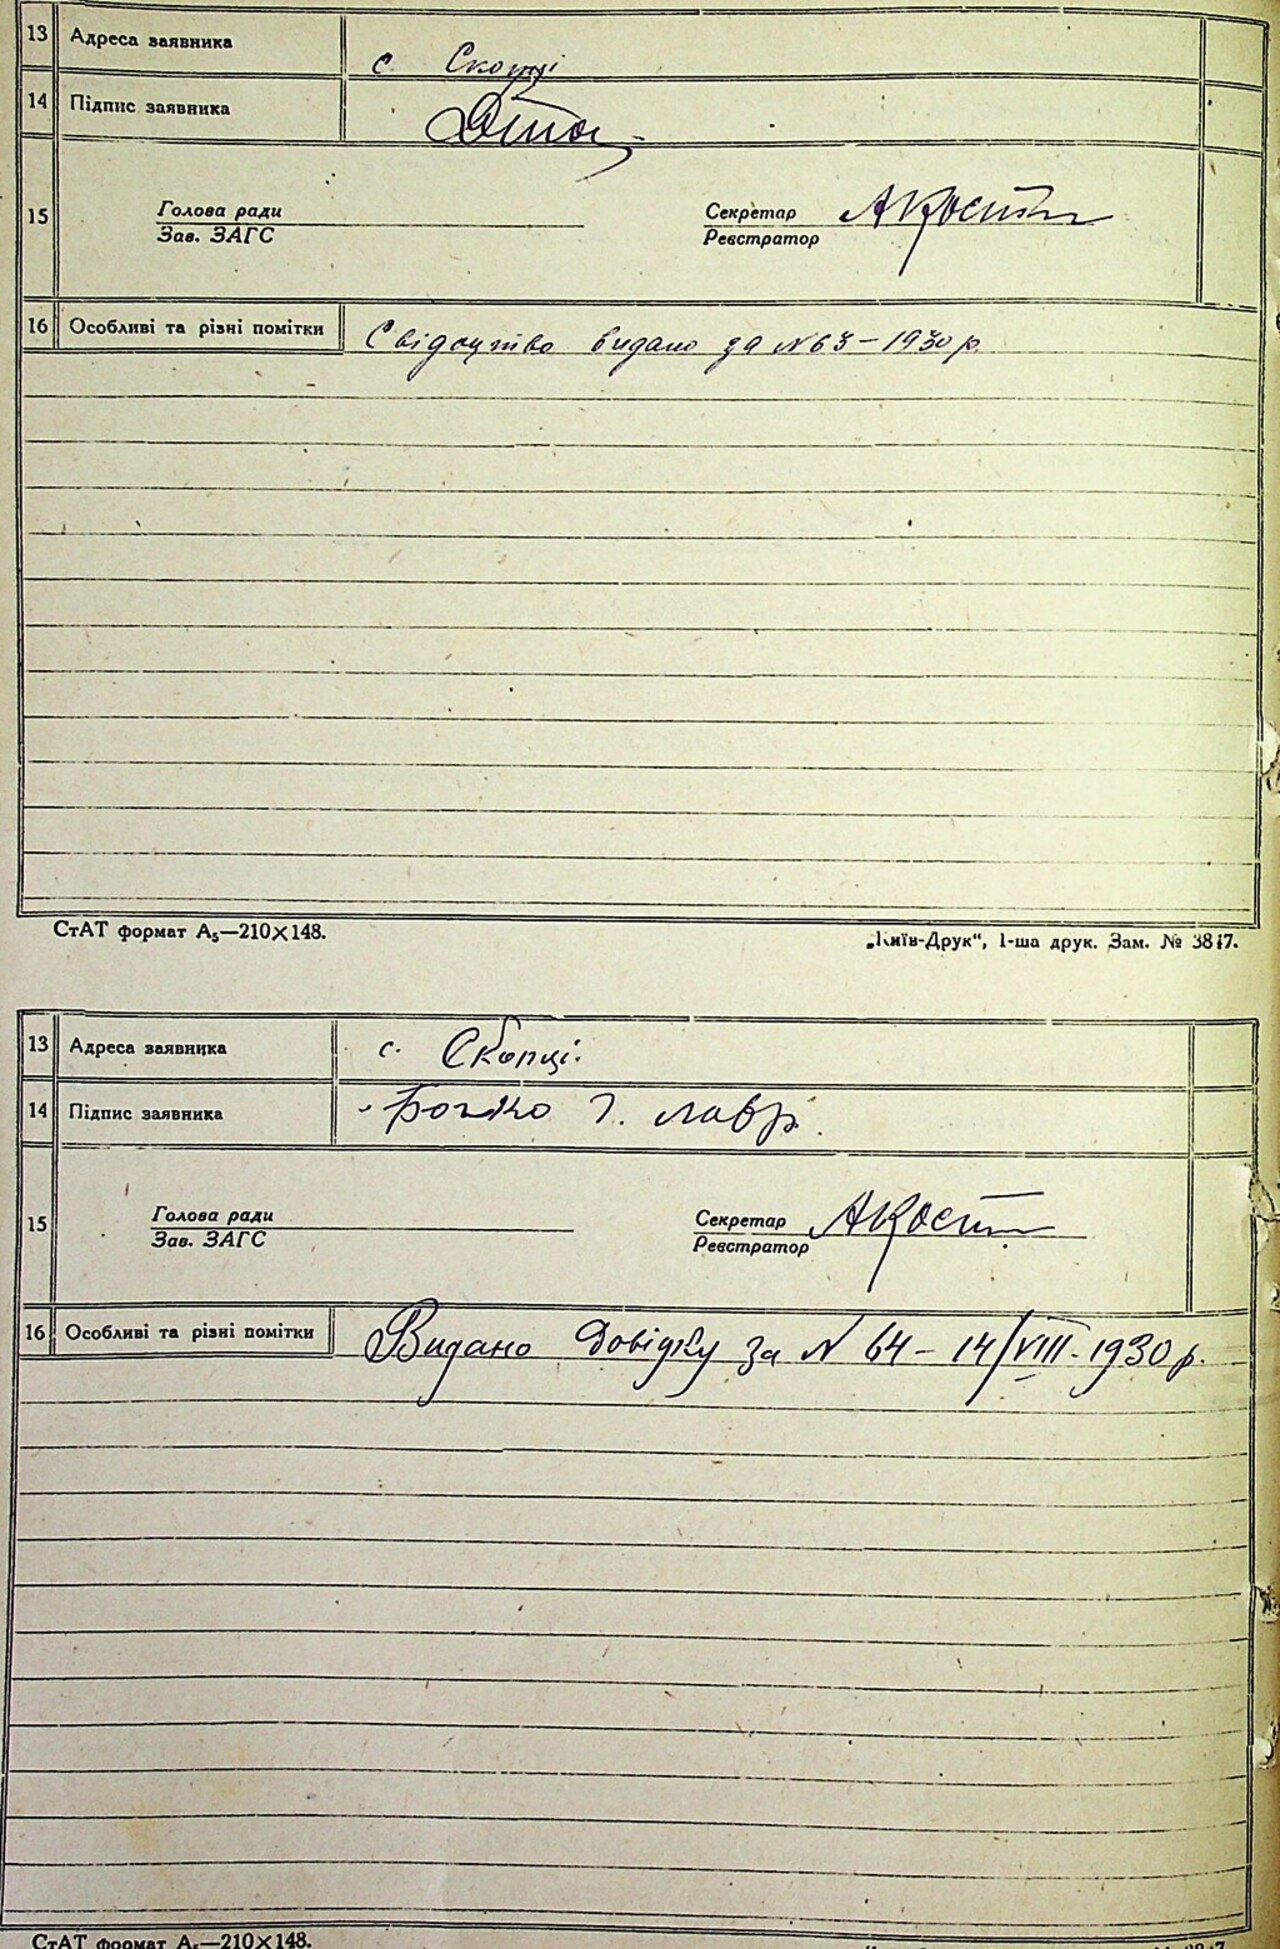 13 Адреса заявника с. Скопці
14 Підпис заявника
15 Голова ради Секретар АКост
Зав. ЗАГС Реєстратор
16 Особливі та різні помітки Свідоцтво видано за №63-1930 р.
СтАТ формат А₅—210×148. „Київ-Друк“, 1-ша друк. Зам. № 3847.
13 Адреса заявника с. Скопці.
14 Підпис заявника Божко Г. Лавр.
15 Голова ради Секретар АКост
Зав. ЗАГС Реєстратор
16 Особливі та різні помітки Видано Довідку за № 64-14/VIII-1930 р.
СтАТ формат А₅—210×148.